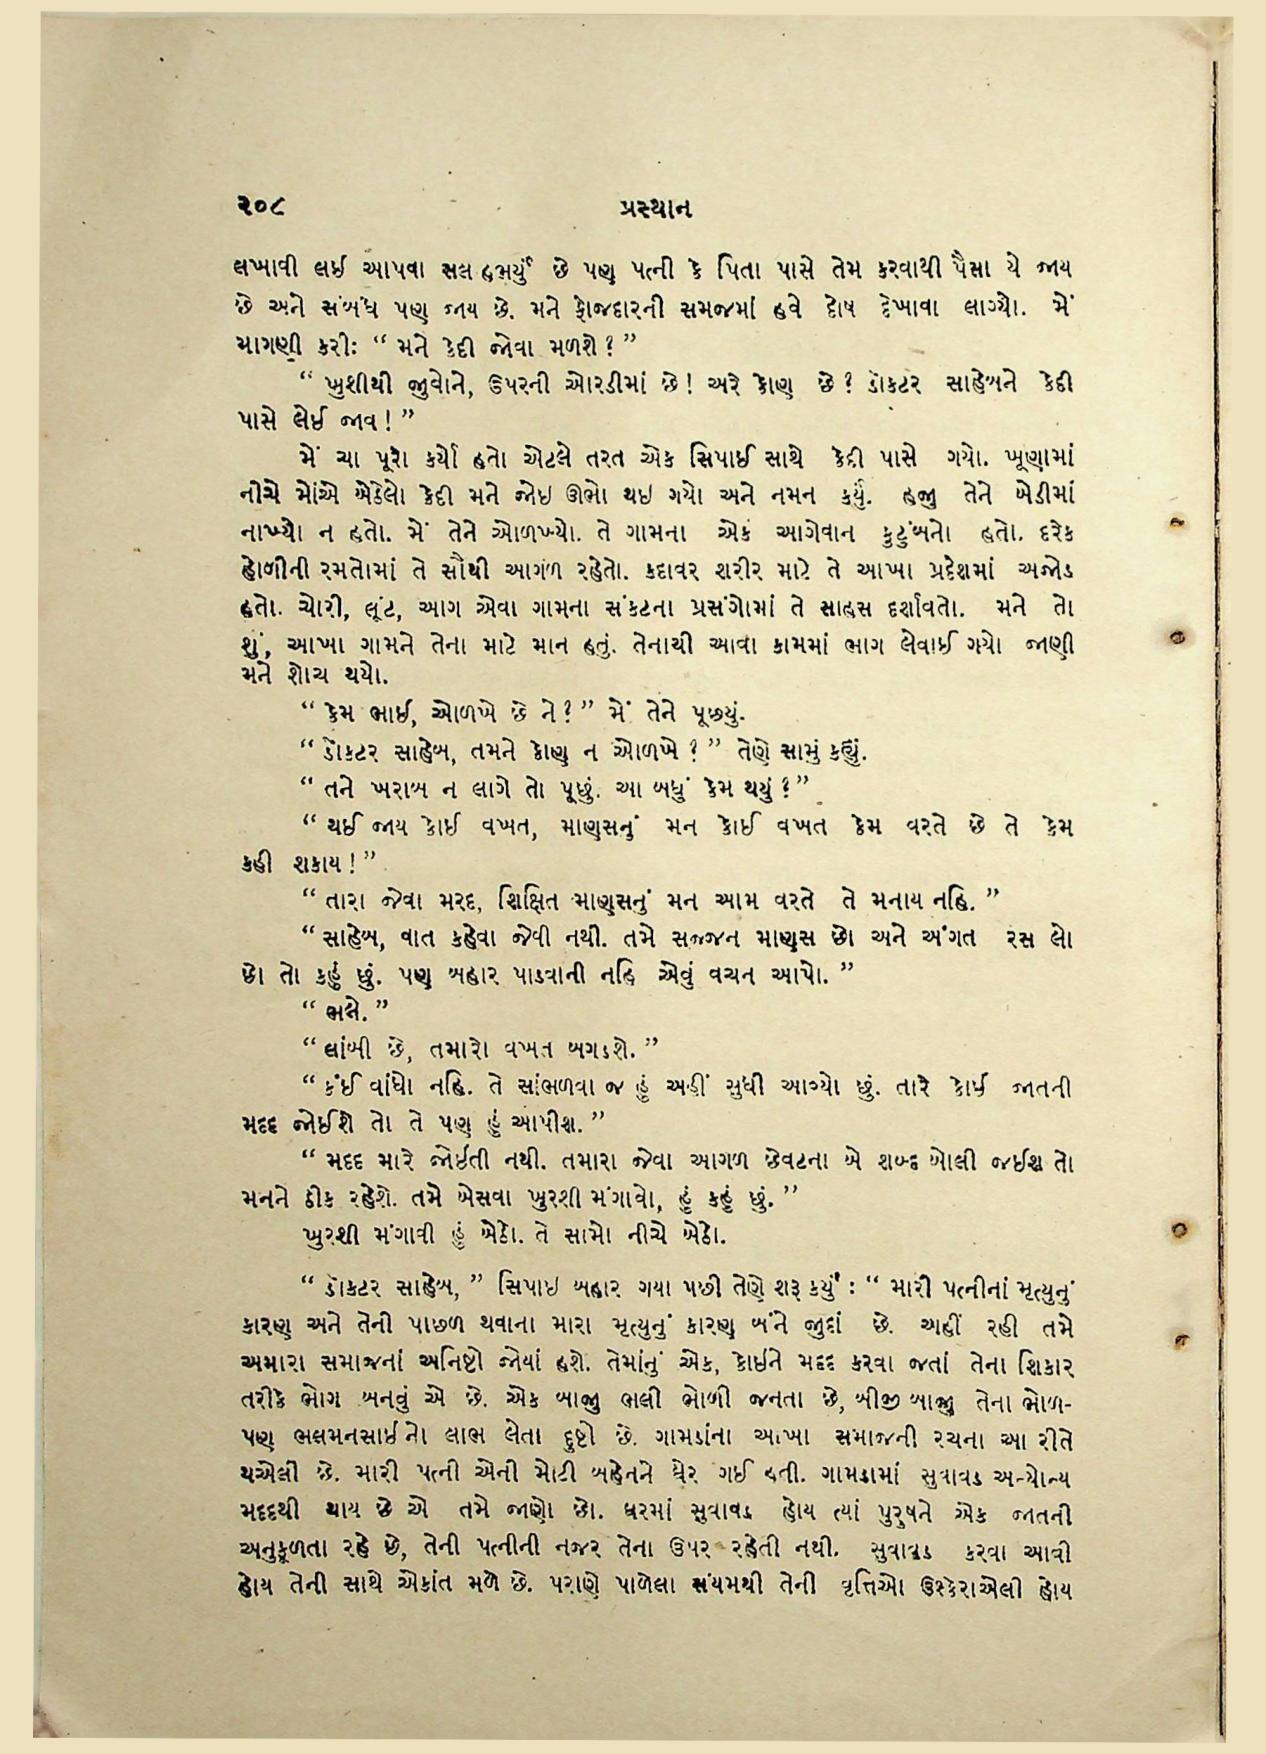 ૨૦૮ પ્રસ્થાન
લખાવી લઈ આપવા સલ હમર્યું છે પણ પત્ની કે પિતા પાસે તેમ કરવાથી પૈસા યે જાય
છે અને સંબંધ પણ જાય છે. મને ફોજદારની સમજમાં હવે દોષ દેખાવા લાગ્યો. મેં
માગણી કરીઃ “ મને કેદી જોવા મળશે ? ”
“ ખુશીથી જુવોને, ઉપરની ઓરડીમાં છે ! અરે કોણ છે ? ડૉકટર સાહેબને કેદી
પાસે લેઈ જાવ ! ”
મેં ચા પૂરો કર્યો હતો એટલે તરત એક સિપાઈ સાથે કેદી પાસે ગયો. ખૂણામાં
નીચે મોંએ બેઠેલો કેદી મને જોઇ ઊભો થઇ ગયો અને નમન કર્યું. હજુ તેને બેડીમાં
નાખ્યો ન હતો. મેં તેને ઓળખ્યો. તે ગામના એક આગેવાન કુટુંબનો હતો. દરેક
હોળીની રમતોમાં તે સૌથી આગળ રહેતો. કદાવર શરીર માટે તે આખા પ્રદેશમાં અજોડ
હતો. ચોરી, લૂંટ, આગ એવા ગામના સંકટના પ્રસંગોમાં તે સાહસ દર્શાવતો. મને તો
શું, આખા ગામને તેના માટે માન હતું. તેનાથી આવા કામમાં ભાગ લેવાઈ ગયો જાણી
મને શોચ થયો.
“ કેમ ભાઈ, ઓળખે છે ને ? ” મેં તેને પૂછયું.
“ ડૉકટર સાહેબ, તમને કોણ ન ઓળખે ? ” તેણે સામું કહ્યું.
“ તને ખરાબ ન લાગે તો પૂછું. આ બધું કેમ થયું ? ”
“ થઈ જાય કોઈ વખત, માણસનું મન કોઈ વખત કેમ વરતે છે તે કેમ
કહી શકાય ! ”
“ તારા જેવા મરદ, શિક્ષિત માણસનું મન આમ વરતે તે મનાય નહિ. ”
“ સાહેબ, વાત કહેવા જેવી નથી. તમે સજ્જન માણસ છો અને અંગત રસ લો
છો તો કહું છું. પણ બહાર પાડવાની નહિ એવું વચન આપો. ”
“ ભલે. ”
“ લાંબી છે, તમારો વખત બગડશે. ”
“ કંઈ વાંધો નહિ. તે સાંભળવા જ હું અહીં સુધી આવ્યો છું. તારે કોઈ જાતની
મદદ જોઈશે તો તે પણ હું આપીશ. ”
“ મદદ મારે જોઈતી નથી. તમારા જેવા આગળ છેવટના બે શબ્દ બોલી જઈશ તો
મનને ઠીક રહેશે. તમે બેસવા ખુરશી મંગાવો, હું કહું છું. ”
ખુરશી મંગાવી હું બેઠો. તે સામો નીચે બેઠો.
“ ડૉકટર સાહેબ, ” સિપાઇ બહાર ગયા પછી તેણે શરૂ કર્યું : “ મારી પત્નીનાં મૃત્યુનું
કારણ અને તેની પાછળ થવાના મારા મૃત્યુનું કારણ બંને જુદાં છે. અહીં રહી તમે
અમારા સમાજનાં અનિષ્ટો જોયાં હશે. તેમાંનું એક, કોઇને મદદ કરવા જતાં તેના શિકાર
તરીકે ભોગ બનવું એ છે. એક બાજુ ભલી ભોળી જનતા છે, બીજી બાજુ તેના ભોળ-
પણ ભલમનસાઈનો લાભ લેતા દુષ્ટો છે. ગામડાંના આખા સમાજની રચના આ રીતે
થએલી છે. મારી પત્ની એની મોટી બહેનને ઘેર ગઈ હતી. ગામડામાં સુવાવડ અન્યોન્ય
મદદથી થાય છે એ તમે જાણો છો. ઘરમાં સુવાવડ હોય ત્યાં પુરુષને એક જાતની
અનુકૂળતા રહે છે, તેની પત્નીની નજર તેના ઉપર રહેતી નથી. સુવાવડ કરવા આવી
હોય તેની સાથે એકાંત મળે છે. પરાણે પાળેલા સંયમથી તેની વૃત્તિઓ ઉશ્કેરાએલી હોય